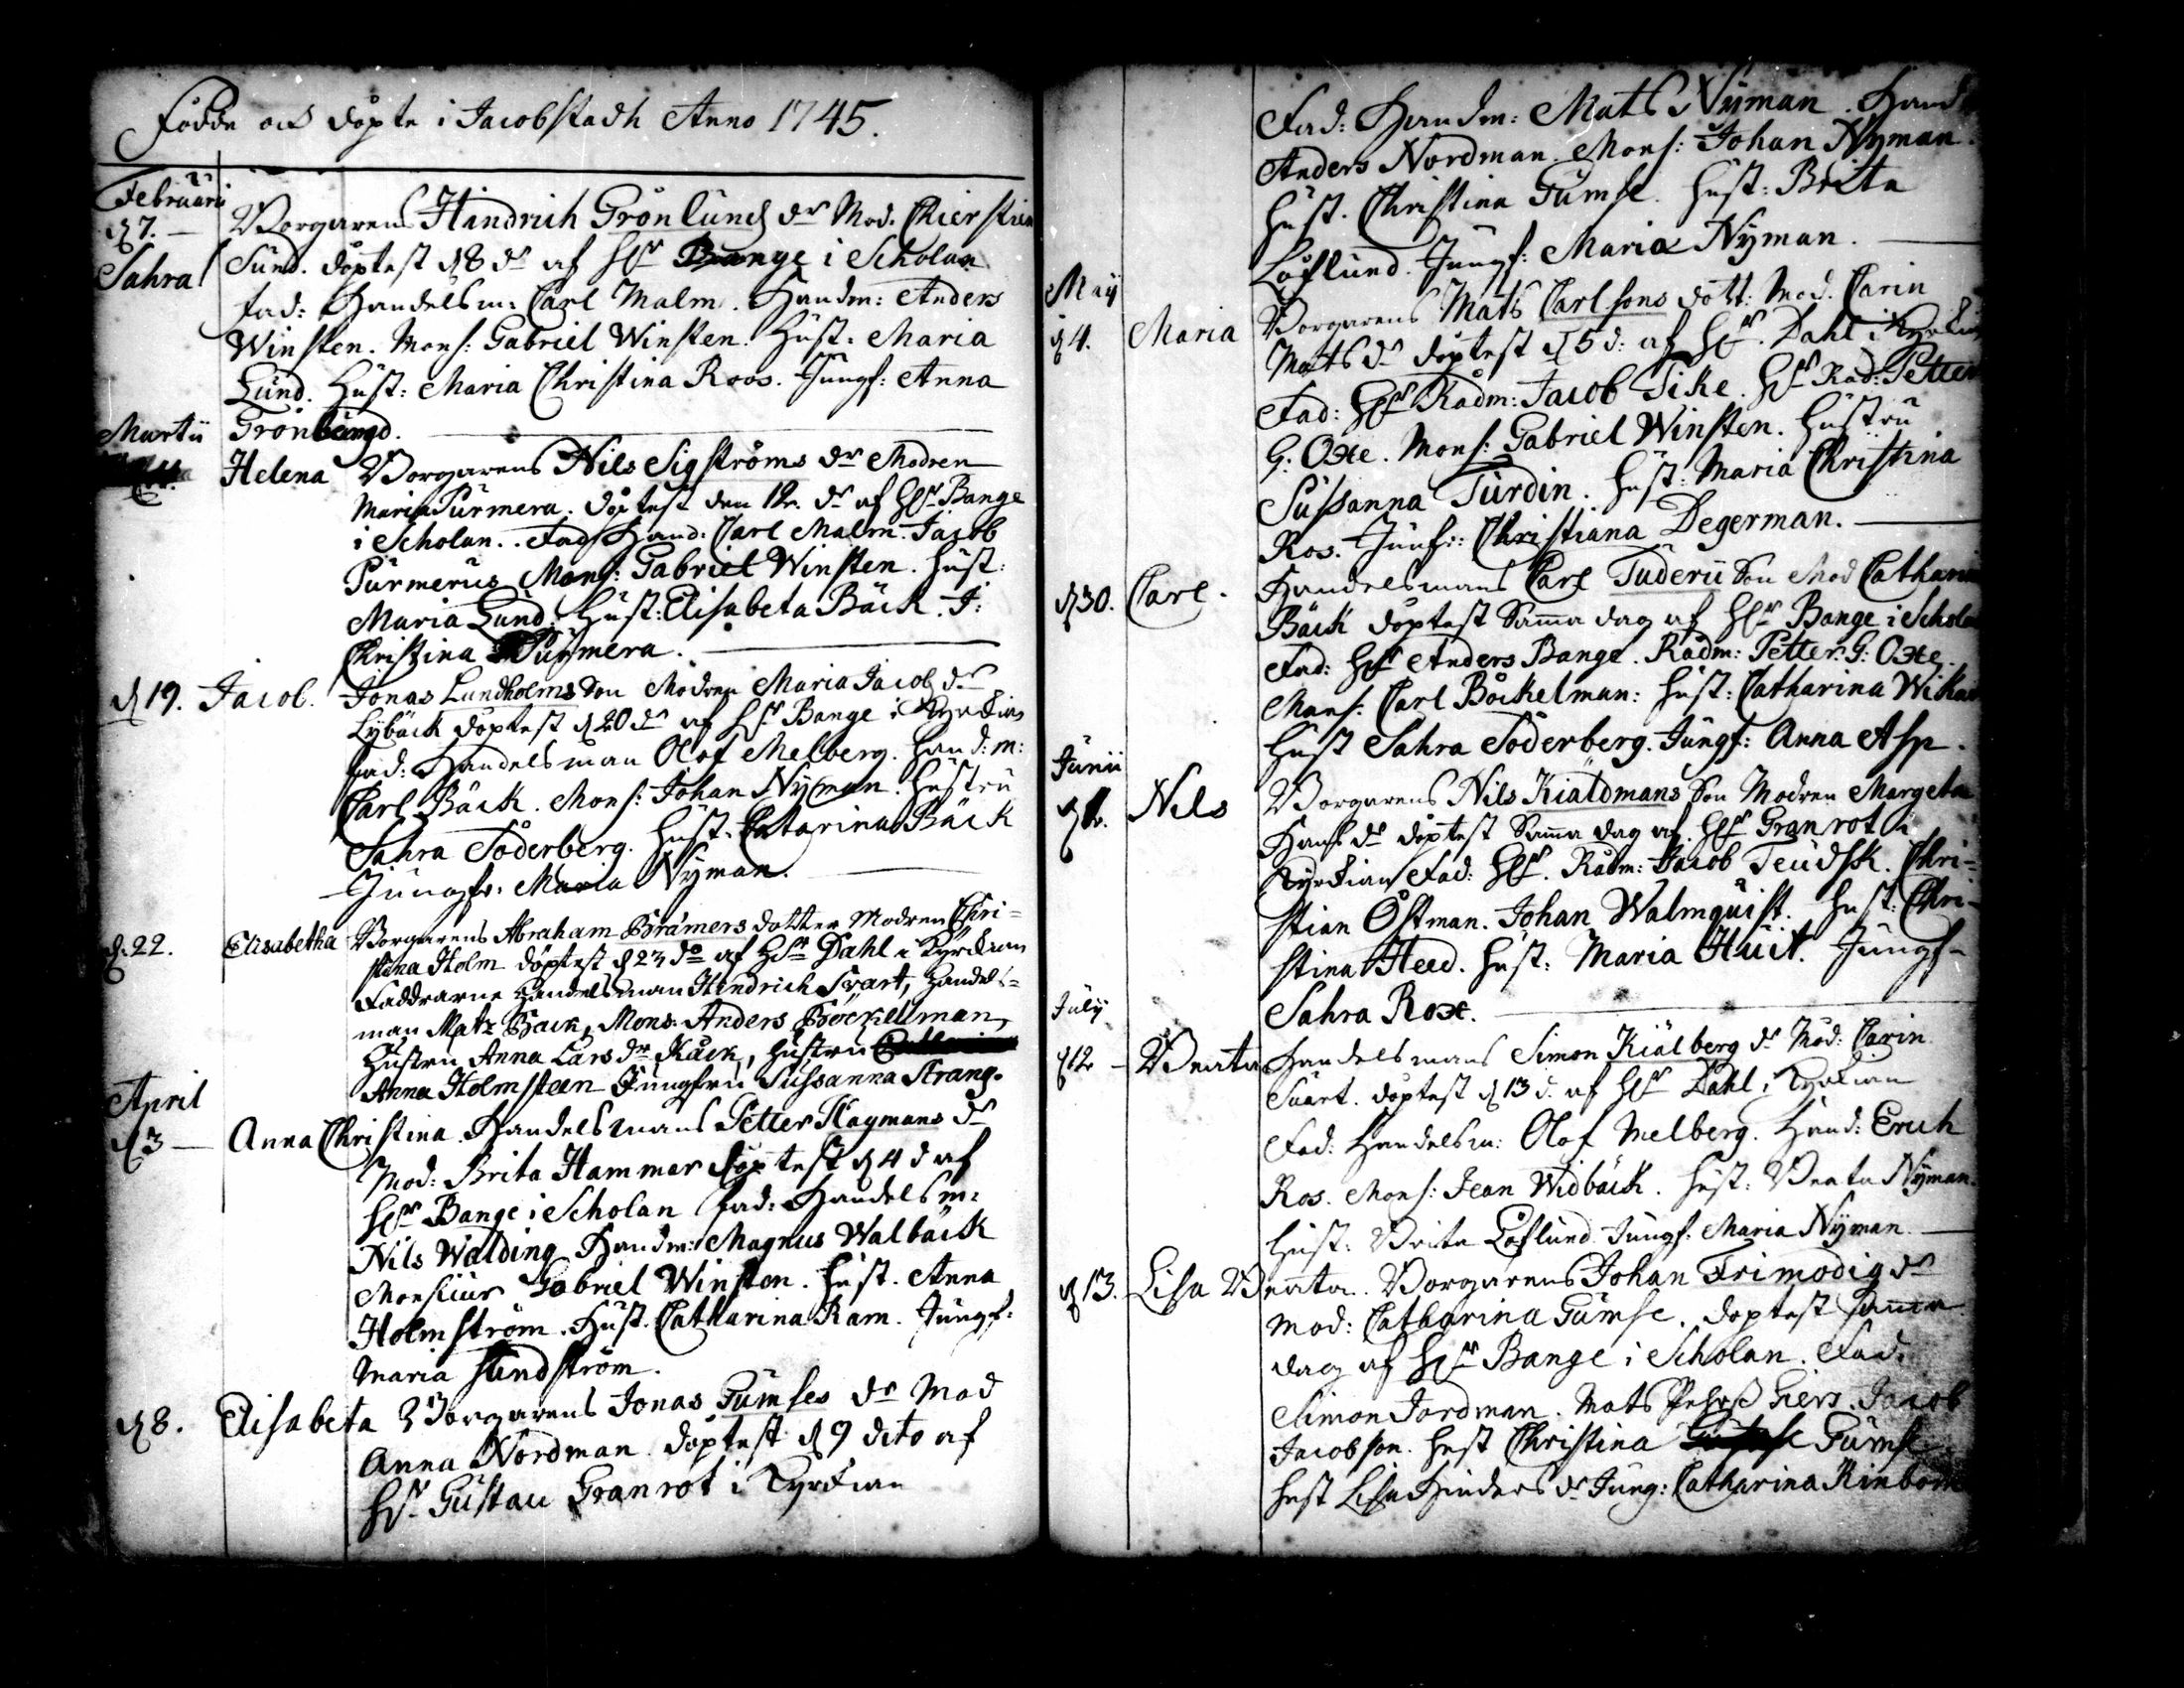 Födde och döpte i Jacobstadh Anno 1745.
Februarii
d 7. — Borgarens Hindrich Grönlunds dr Mod. Chierstin
Sahra Sund. döptest d 8 do af Hr Bange i Scholan
fad: Handelsm: Carl Malm. Handm: Anders
Winsten. Mons: Gabriel Winsten. Hust: Maria
Lund. Hust: Maria Christina Roos. Jungf: Anna
Martii
Helena Borgarens Nils Sigströms dr Modren
Maria Purmera. döptest den 12. do af Hr Bange
i Scholan. Fad Hand: Carl Malm. Jacob
Purmerus Mons: Gabriel Winsten. Hust:
Maria Lund. Hust: Elisabeta Bäck. J:
Christina Purmera.
d 19. Jacob. Jonas Lundholms Son Modren Maria Jacobs dr
Lybäck döptest d 20 do af Hr Bange i Kyrkian
fad: Handelsman Olof Melberg. Hand: m:
Carl Bäck. Mons: Johan Nyman. Hustru
Sahra Söderberg. Hust. Catarina Bäck
Jungfr: Maria Nyman.
d. 22. Elisabetha Borgarens Abraham Brämers dotter Modren Chri-
stina Holm döptest d 23 do af Hr Dahl i Kyrkian
Faddrarne Handelsman Hindrich Svart, Handels-
man Matz Back, Mons. Anders Böckelman,
Hustru Anna Lars dr Kåck, hustru
Anna Holmsteen Jungfru Sussanna Strang.
April
d 3 — Anna Christina Handelsmans Petter Hagmans dr
Mod: Brita Hammar döptest d 4 d af
Hr Bange i Scholan fad: Handelsm:
Nils Walding Handm: Magnus Walbäck
Monsieur Gabriel Winsten. Hust. Anna
Holmström. Hust. Catharina Ram. Jungf:
Maria Sundström.
d 8. Elisabeta Borgarens Jonas Gumses dr Mod
Anna Nordman döptest d 9 dito af
Hr Gustau Granrot i Kyrkian
Fad: Handm: Mats Nyman. Hand
Anders Nordman. Mons: Johan Nyman.
Hust. Christina Gumse. Hust: Brita
Löflund. Jungf: Maria Nyman.
Maij
d 4. Maria Borgarens Mats Carlsons dott: Mod. Carin
Mats dr döptest d 5 d: af Hr. Dahl i Kyrkian
Fad: Hr Rådm: Jacob Tike. Hr Råd: Petter
G: Oxe. Mons: Gabriel Winsten. Hustru
Sussanna Turdin. Hust: Maria Christina
Ros. Junfr: Christiana Degerman.
d 30. Carl. Handelsmans Carl Tuderii Son Mod Catharin
Bäck döptest Sama dag af Hr Bange i Schola
Fad: Hr Anders Bange. Rådm: Petter G: Oxe.
Mons: Carl Böckelman: Hust: Catharina Wikar
Hust Sahra Söderberg. Jungf: Anna Asp.
Junii
Nils Borgarens Nils Kiäldmans Son Modren Margeta
Hans dr döptest Sama dag af Hr Granrot i
Kyrkian Fad: Hr. Rådm: Jacob Teudsk. Chri-
stian Östman. Johan Walmquist. Hust: Chri-
stina Heed. Hust: Maria Huit. Jungf-
Sahra Rox.
Julij
d 12 — Beata Handelsmans Simon Kiälberg dr Mod: Carin
Suart. döptest d 13 d. af Hr Dahl i Kyrkian
Fad: Handelsm: Olof Melberg. Hand: Erich
Ros. Mons: Jean Widbäck. Hust: Beata Nyman.
Hust: Brita Löflund. Jungf: Maria Nyman.
d 13. Lisa Beata. Borgarens Johan Frimodig dr
Mod: Catharina Gumse. döptest sama
dag af Hr Bange i Scholan. Fad:
Simon Jordman. Mats Jacob
Jacobson. Hust Christina Gumse
Hust Lisa Hinders dr Jung: Catharina Rinbom